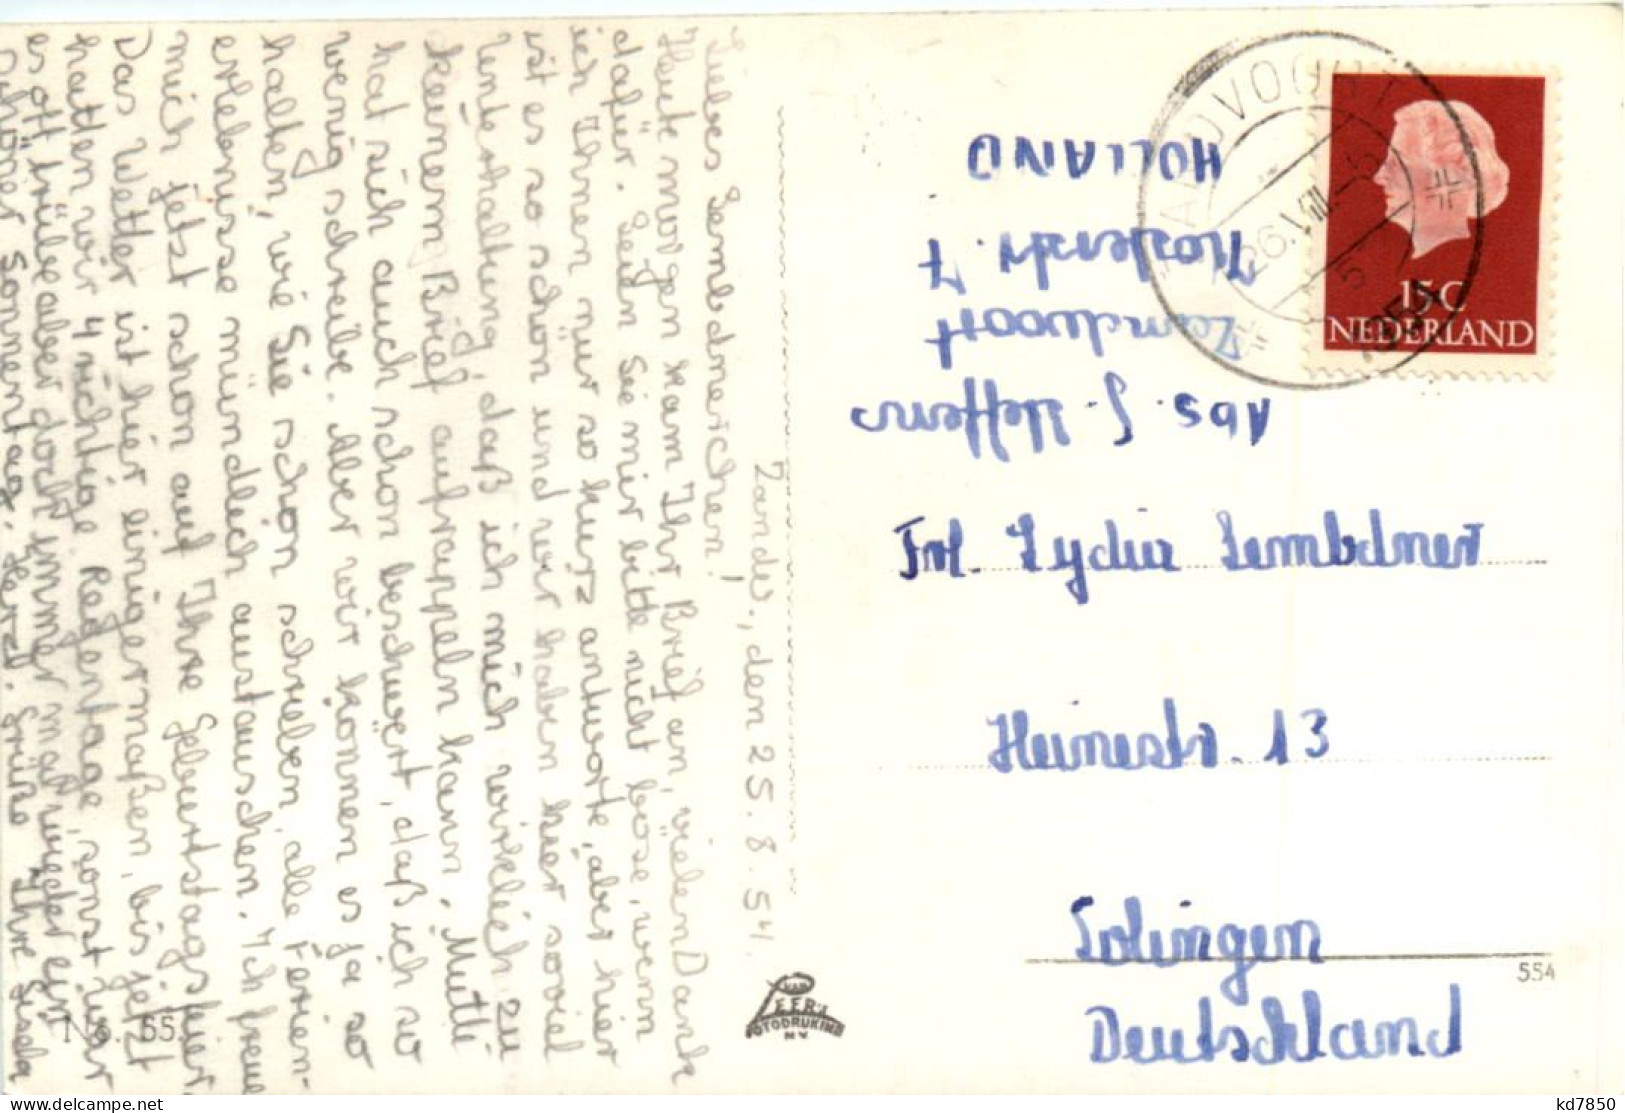 Zandv., den 25.8.54.
Liebes Lembdnerchen!
Heute morgen kam Ihr Brief an, vielen Dank
dafür. Seien Sie mir bitte nicht böse, wenn
ich Ihnen nur so kurz antworte, aber hier
ist es so schön und wir haben hier soviel
Unterhaltung, daß ich mich wirklich zu
keinem Brief aufrappeln kann. Mutti
hat sich auch schon beschwert, daß ich so
wenig schreibe. Aber wir können es ja so
halten, wie Sie schon schrieben, alle Ferien-
erlebnisse mündlich austauschen. Ich freue
mich jetzt schon auf Ihre Geburtstagsfeier.
Das Wetter ist hier einigermaßen, bis jetzt
hatten wir 4 richtige Regentage, sonst war
es oft trübe aber doch immer mal wieder ein
schöner Sonnentag. Herzl. Grüße Ihre Gisela
HOLLAND
Kosterstr. 7
Zandvoort
Abs. G. Steffens
Frl. Lydia Lembdner
Heinestr. 13
Solingen
Deutschland
ZANDVOORT
26.VIII.
5
1954
15C
NEDERLAND
VAN
LEER'S
FOTODRUKIND
N.V.
554
No. 55
kd7850